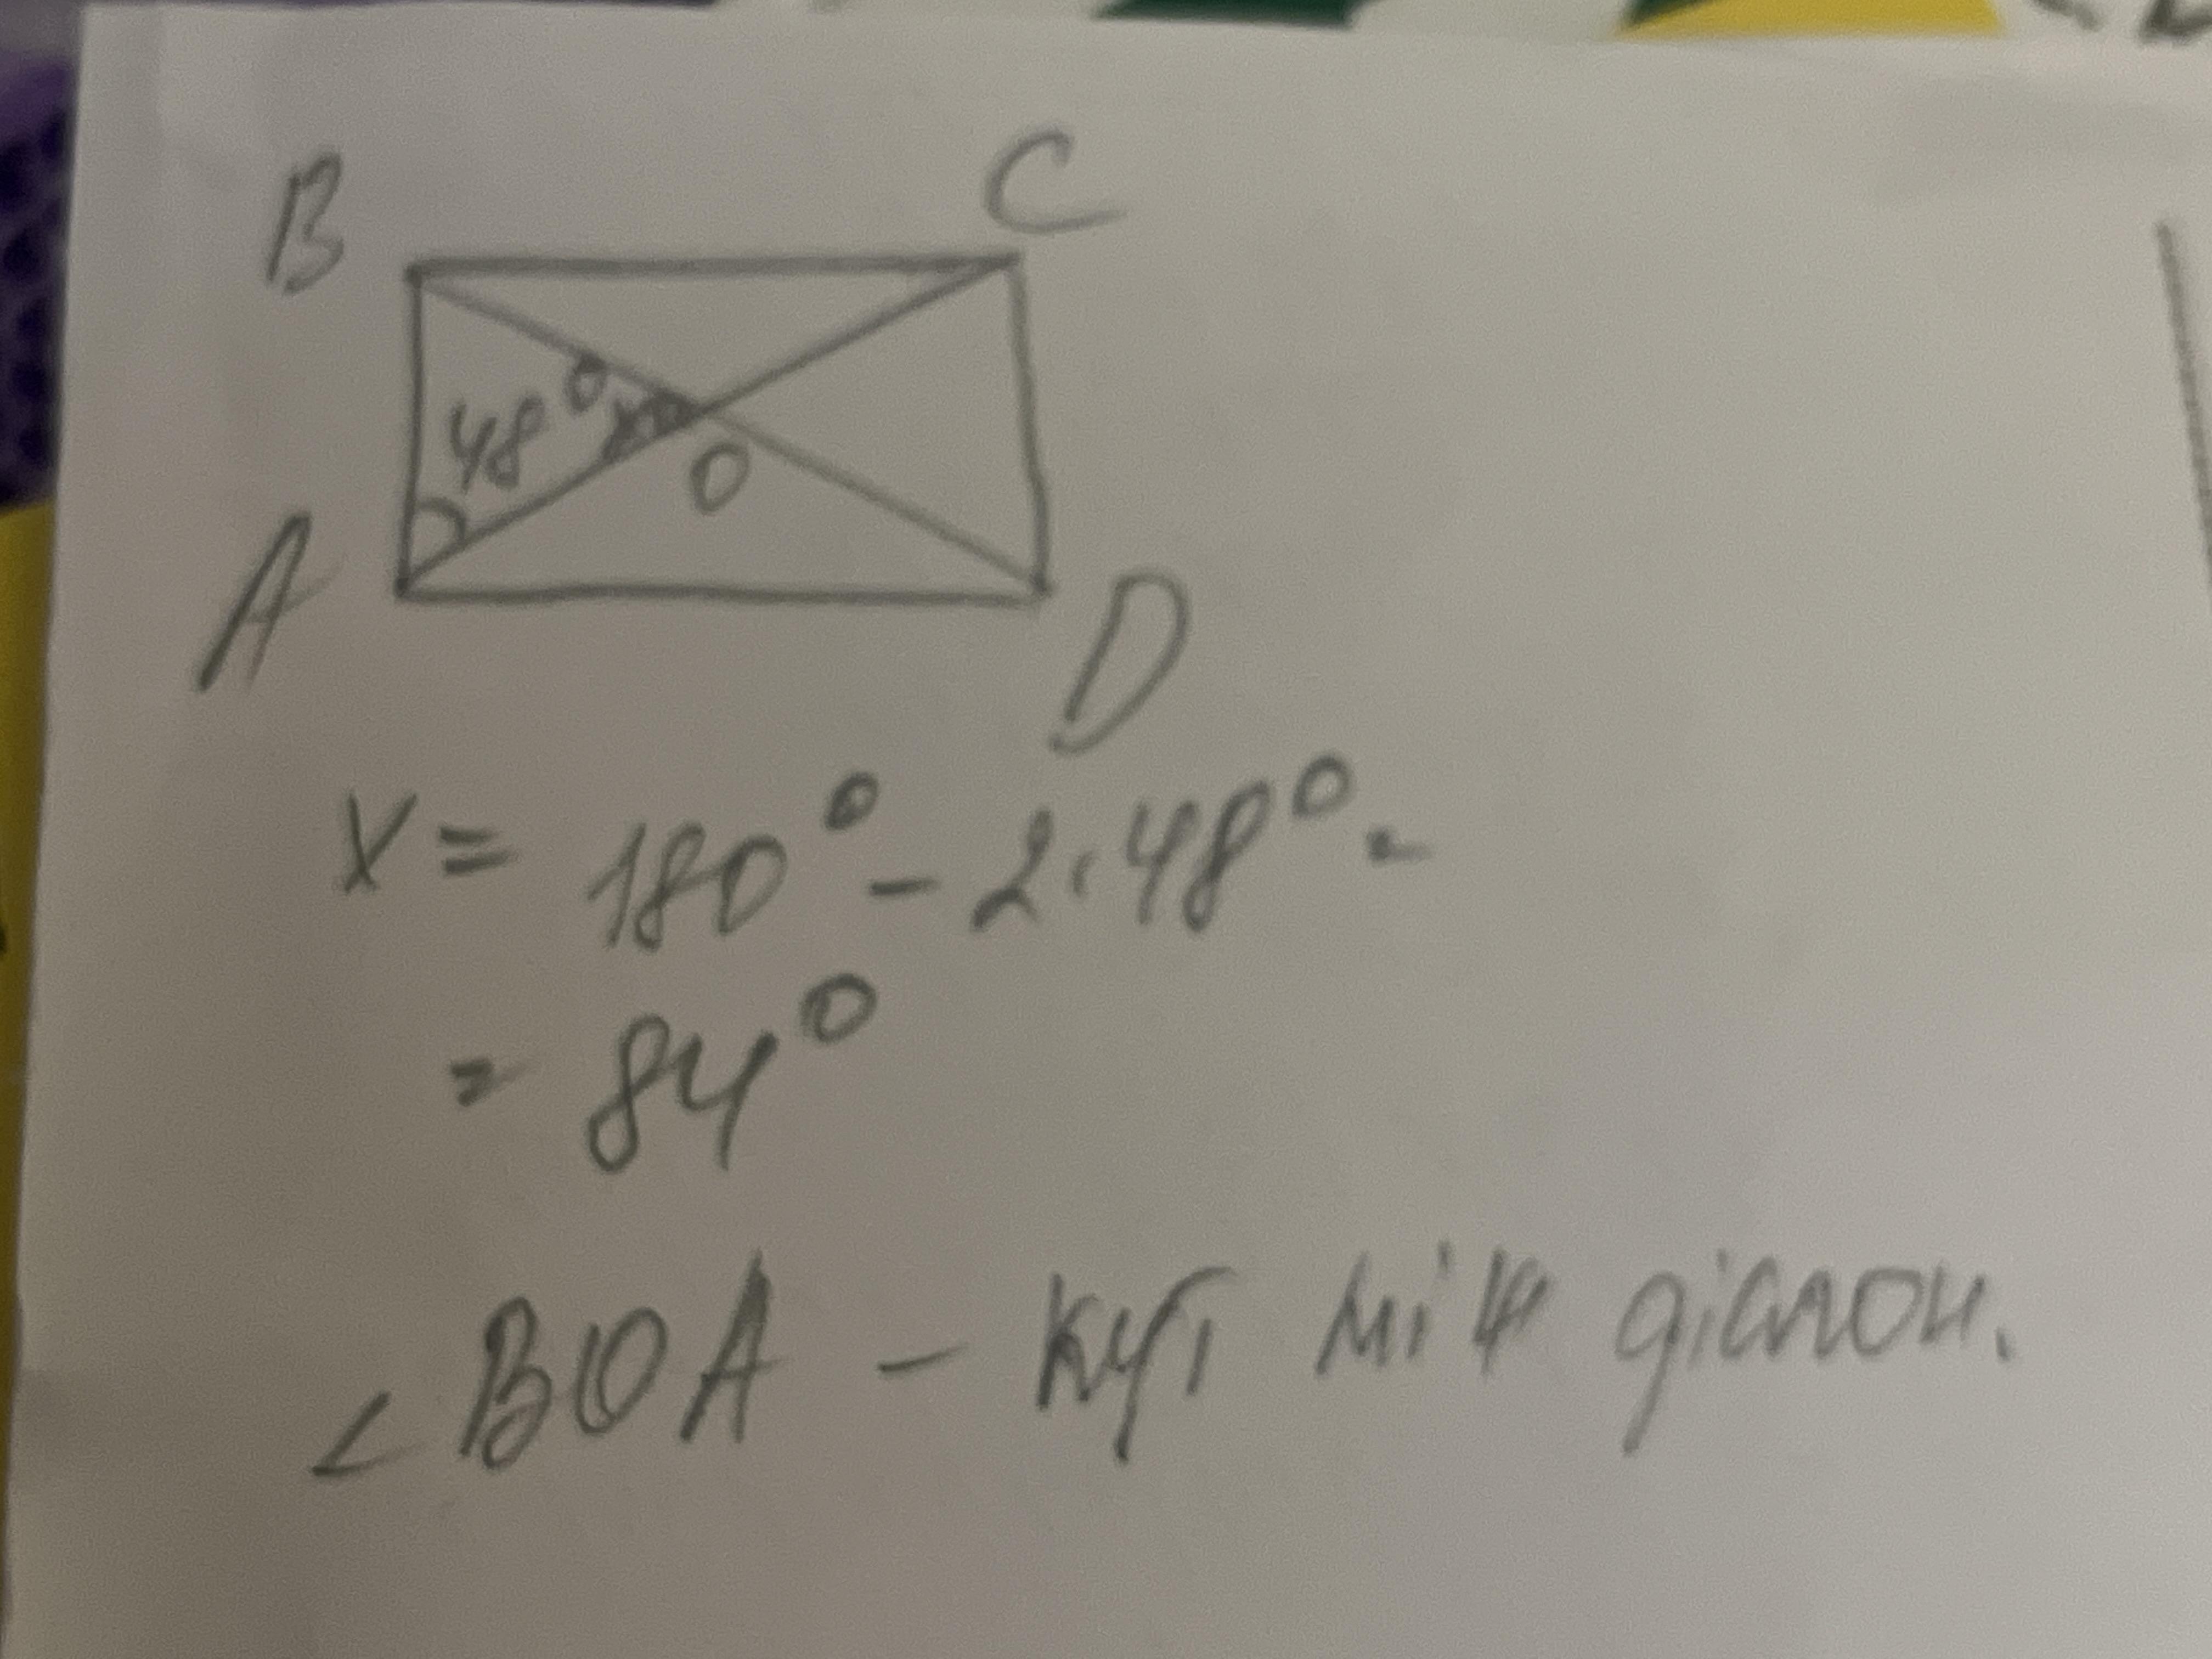 B
C
48°
x
O
A
D
x = 180° - 2·48° =
= 84°
∠BOA - кут між діагон.